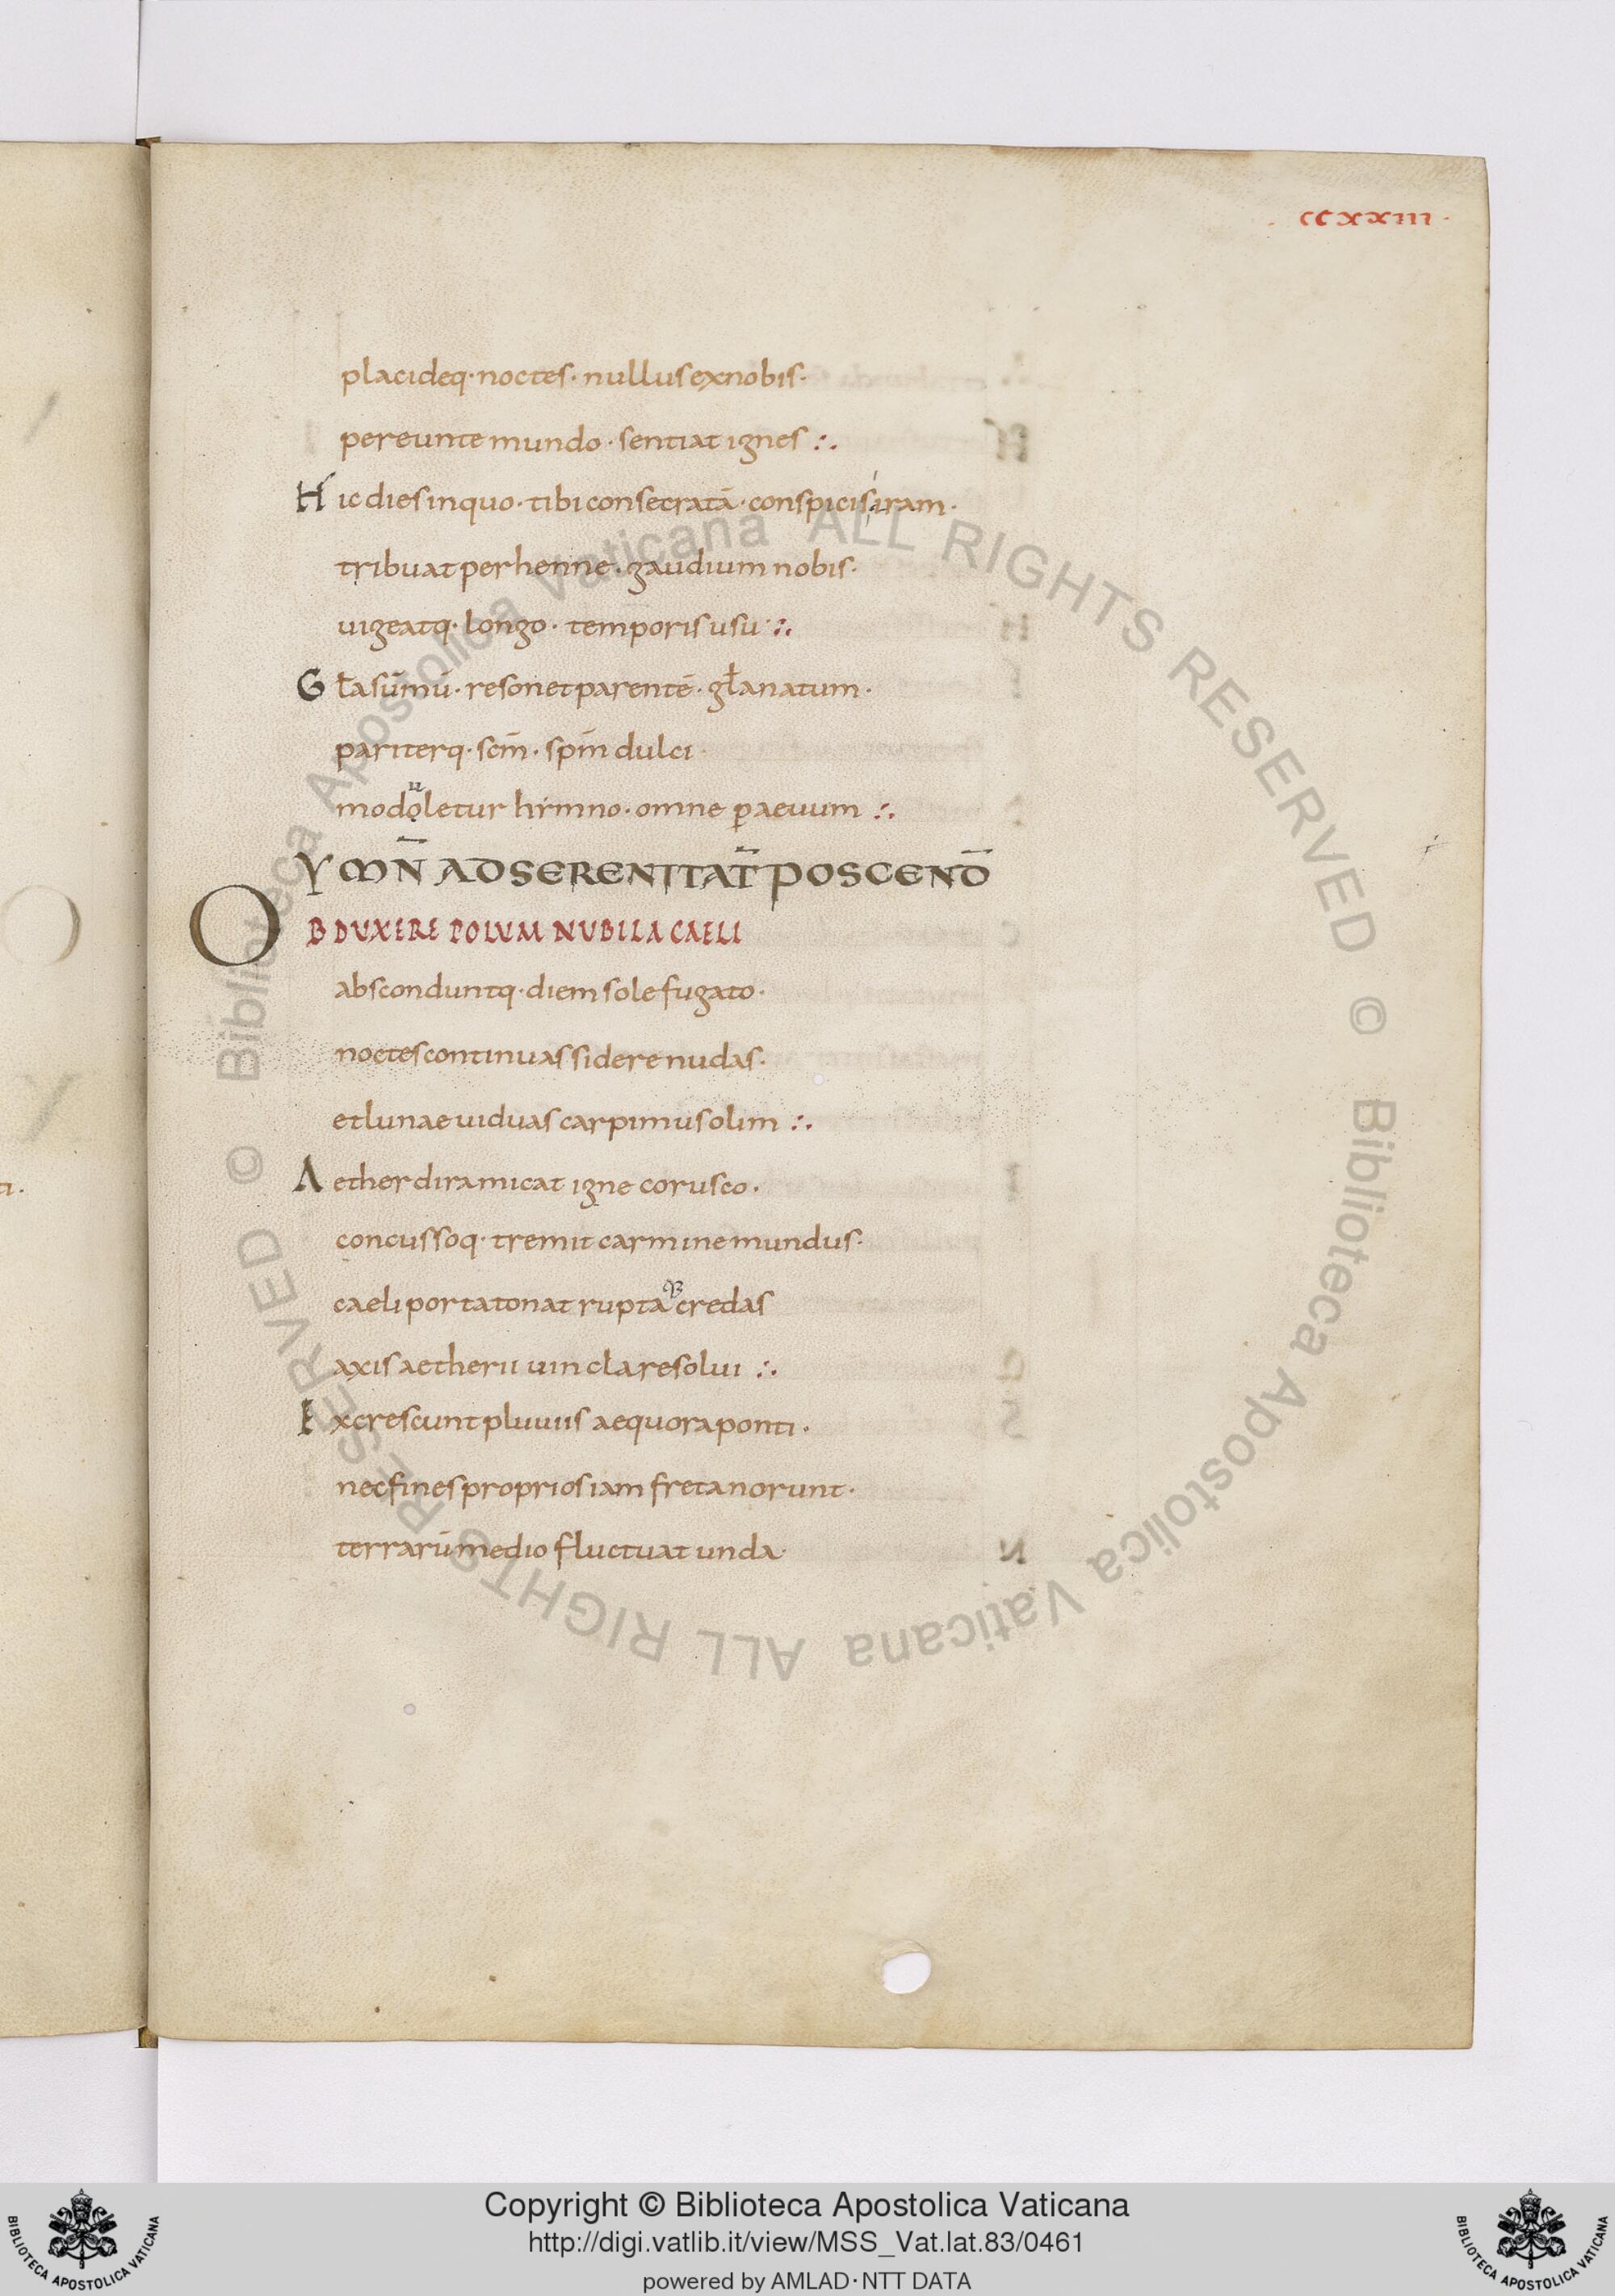 ccxxiii·
placideq·noctes·nullus ex nobis·
pereunte mundo·sentiat ignes :.
Hic dies in quo·tibi consecratā·conspicis iram·
tribuat perhenne·gaudium nobis·
uigeatq·longo·temporis usu :.
Gła sūmū·resonet parentē·gła natum·
pariterq·scm̄·spm̄ dulci·
modoletur hymno·omne ꝑ aeuum :.
u
YMN̄ AD SERENITAT̄ POSCEND̄
OBDUXERE POLUM NUBILA CAELI
absconduntq·diem sole fugato·
noctes continuas sidere nudas·
et lunae uiduas carpimus olim :.
Aether dira micat igne corusco·
concussoq·tremit carmine mundus·
caeli porta tonat rupta credas
axis aetherii uincla resolui :.
Excrescunt pluuiis aequora ponti·
nec fines proprios iam freta norunt·
terrarū medio fluctuat unda·
© Biblioteca Apostolica Vaticana ALL RIGHTS RESERVED
© Biblioteca Apostolica Vaticana ALL RIGHTS RESERVED
Copyright © Biblioteca Apostolica Vaticana
http://digi.vatlib.it/view/MSS_Vat.lat.83/0461
powered by AMLAD·NTT DATA
BIBLIOTECA APOSTOLICA VATICANA
BIBLIOTECA APOSTOLICA VATICANA